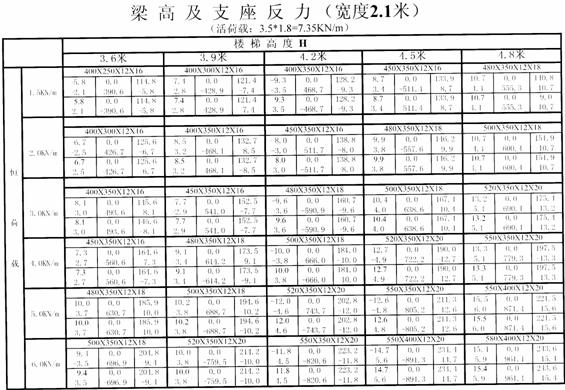 梁高及支座反力（宽度2.1米）
(活荷载: 3.5*1.8=7.35KN/m)
楼梯高度H
3.6米 3.9米 4.2米 4.5米 4.8米
恒荷载
400X250X12X16 400X300X12X16 400X300X12X16 450X350X12X16 480X350X12X18
1.5KN/m
-5.8 0.0 114.8 7.4 0.0 121.4 -9.3 0.0 128.2 8.7 0.0 133.9 10.7 0.0 140.8
-2.1 390.6 -5.8 2.8 -428.9 -7.4 -3.5 468.7 -9.3 3.4 -511.4 8.7 4.1 555.3 10.7
5.8 0.0 114.8 7.4 0.0 121.4 9.3 0.0 128.2 8.7 0.0 133.9 10.7 0.0
-2.1 390.6 -5.8 2.8 428.9 7.4 3.5 -468.7 -9.3 3.4 511.4 8.7 4.1 555.3 10.7
400X300X12X16 400X350X12X16 450X350X12X16 480X350X12X18 500X350X12X18
2.0KN/m
6.7 0.0 125.6 8.5 0.0 132.7 8.0 0.0 138.8 9.9 0.0 146.2 10.7 0.0 151.9
-2.5 426.7 -6.7 3.2 -468.1 8.5 -3.0 511.7 -8.0 3.8 -557.6 9.9 4.1 600.4 10.7
6.7 0.0 125.6 8.5 0.0 132.7 8.0 0.0 138.8 9.9 0.0 146.2 10.7 0.0 151.9
2.5 426.7 6.7 3.2 468.1 -8.5 3.0 -511.7 8.0 3.8 557.6 9.9 4.1 600.4 10.7
400X350X12X16 450X350X12X16 480X350X12X18 500X350X12X18 520X350X12X20
3.0KN/m
8.1 0.0 145.6 7.7 0.0 152.5 -9.6 0.0 160.7 10.4 0.0 167.1 13.2 0.0 175.4
3.0 493.6 8.1 2.9 541.0 -7.7 -3.6 -590.9 -9.6 4.0 638.6 10.4 5.1 690.1 13.2
8.1 0.0 145.6 7.7 0.0 152.5 9.6 0.0 160.7 10.4 0.0 167.1 13.2 0.0 175.4
3.0 493.6 8.1 2.9 541.0 -7.7 3.6 -590.9 -9.6 4.0 638.6 10.4 5.1 690.1 13.2
450X350X12X16 480X350X12X18 500X350X12X18 520X350X12X20 550X350X12X20
4.0KN/m
7.3 0.0 164.6 9.1 0.0 173.5 -10.0 0.0 181.0 12.7 0.0 190.0 13.3 0.0 197.5
-2.7 560.6 7.3 3.4 614.2 9.1 -3.8 666.0 -10.0 -4.9 722.2 12.7 5.1 779.3 -13.3
7.3 0.0 164.6 9.1 0.0 173.5 10.0 0.0 181.0 12.7 0.0 190.0 13.3 0.0 197.5
-2.7 560.6 -7.3 3.1 -614.2 9.1 3.8 -666.0 -10.0 4.9 722.2 12.7 5.1 779.3 13.3
480X350X12X18 500X350X12X18 520X350X12X20 550X350X12X20 550X400X12X20
5.0KN/m
10.0 0.0 185.9 10.2 0.0 194.6 -12.0 0.0 202.8 -12.6 0.0 211.3 15.5 0.0 221.5
3.7 630.7 10.0 3.8 688.7 10.2 -4.6 743.7 -12.0 -4.8 805.2 12.6 6.0 871.4 15.6
10.0 0.0 185.9 10.2 0.0 194.6 12.0 0.0 202.8 12.6 0.0 211.3 15.5 0.0 221.5
3.7 630.7 10.0 3.8 -688.7 10.2 4.6 -743.7 -12.0 4.8 805.2 12.6 6.0 871.4 15.6
500X350X12X18 520X350X12X20 550X350X12X20 550X400X12X20 580X400X12X20
6.0KN/m
9.4 0.0 201.8 10.0 0.0 214.2 -11.8 0.0 223.2 -14.7 0.0 234.1 15.4 0.0 243.6
-3.5 696.9 9.4 3.8 -759.5 -10.0 4.5 -820.6 -11.8 5.6 -891.3 14.7 5.9 961.1 15.4
9.4 0.0 201.8 10.0 0.0 214.2 11.8 0.0 223.2 14.7 0.0 234.4 15.4 0.0 243.6
3.5 -696.9 -9.4 3.8 -759.5 -10.0 4.5 -820.6 -11.8 5.6 -891.3 14.7 5.9 961.1 15.4